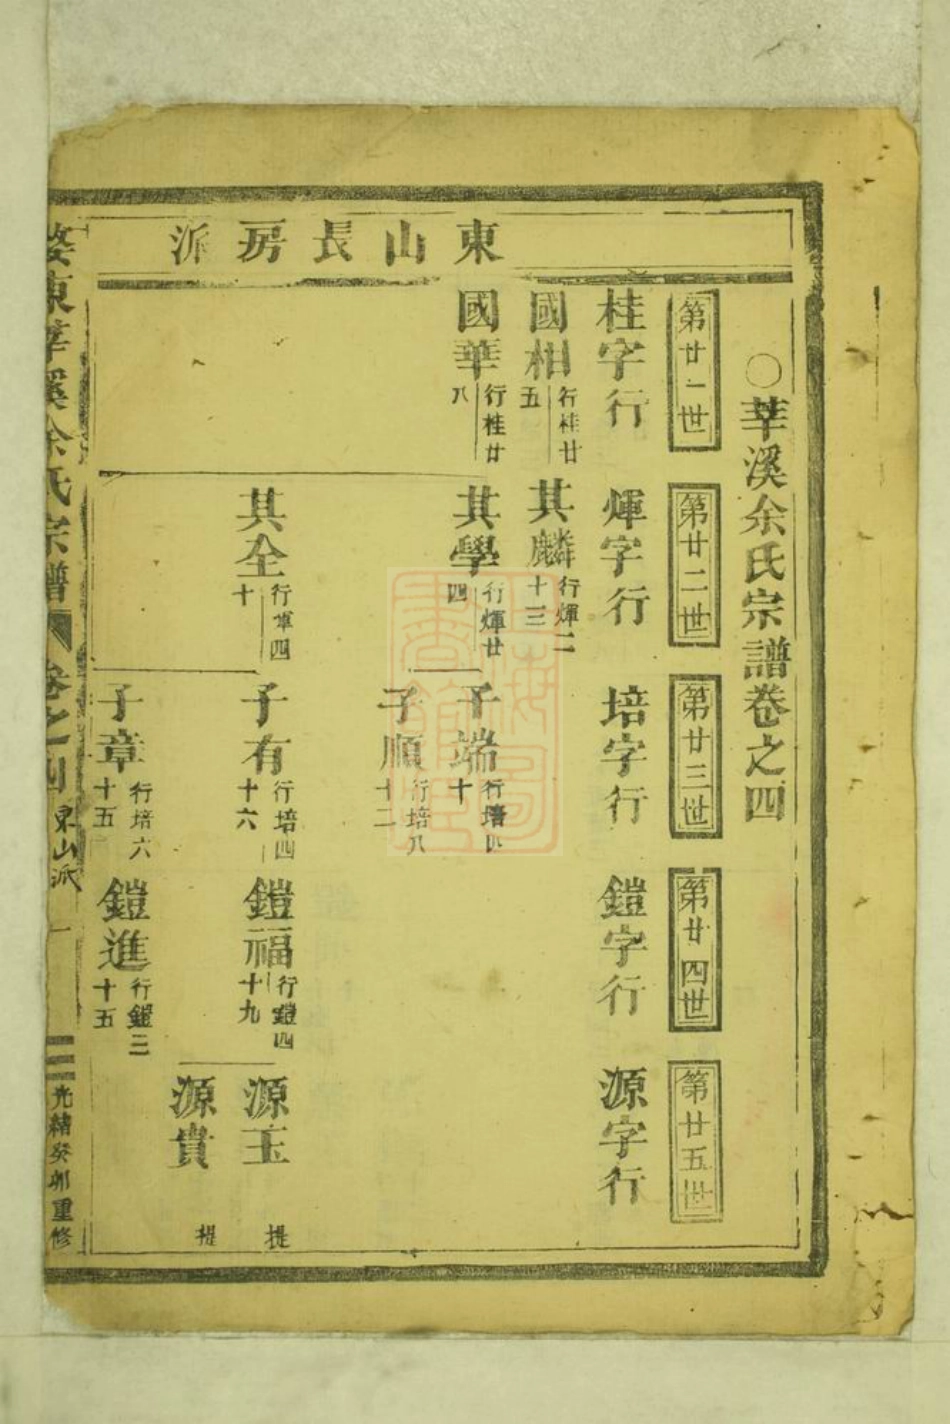 ○莘溪余氏宗譜卷之四
東山長房派
第廿一世
第廿二世
第廿三世
第廿四世
第廿五世
桂字行
煇字行
培字行
鎧字行
源字行
國相 行桂廿五
其麟 行煇二十三
國華 行桂廿八
其學 行煇廿四
子端 行培四十
子順 行培八十二
其全 行煇四十
子有 行培四十六
鎧福 行鎧四十九
源玉 提
源貴 提
子章 行培六十五
鎧進 行鎧三十五
婺東莘溪余氏宗譜 卷之四 東山派 一 光緒癸卯重修
上海圖書館藏